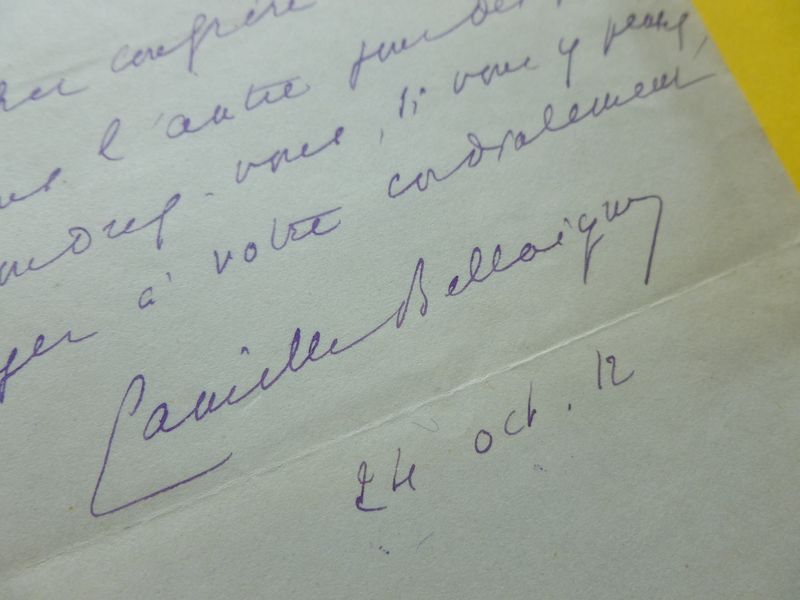 confrère
l'autre jour des
vous, si vous y pensez,
à votre cordialement
Camille Bellaigue
24 oct. 12